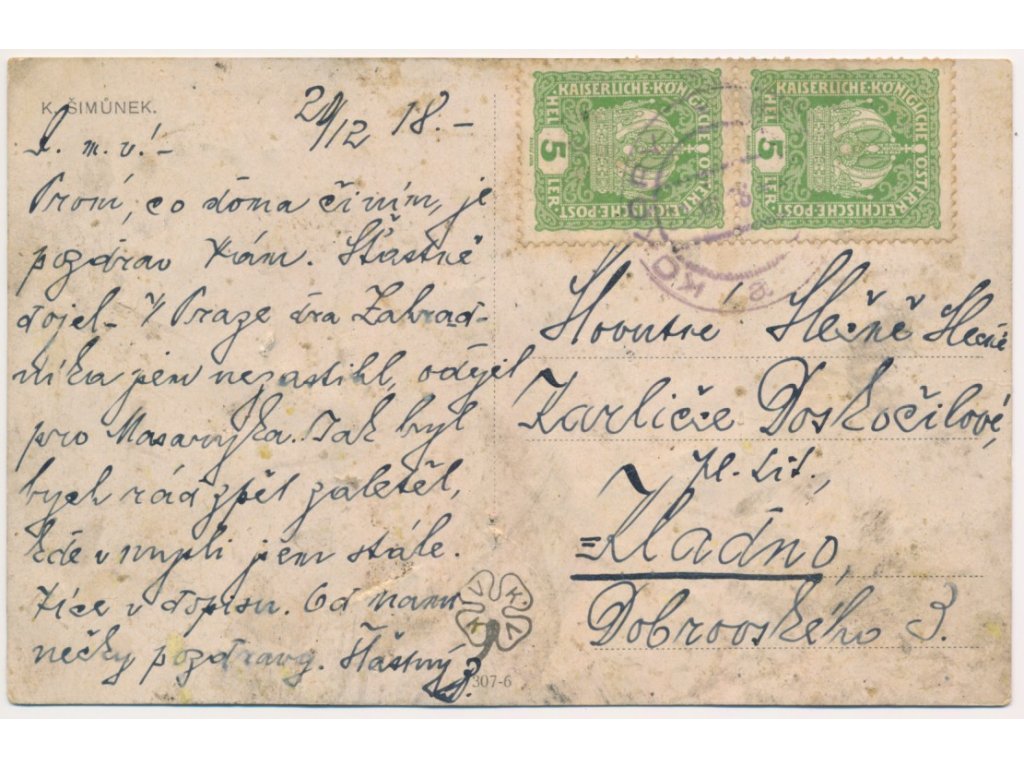 K. ŠIMŮNEK.
29/12 18.-
L. m. ú.-
První, co doma činím, je
pozdrav Vám. Šťastně
dojel- V Praze dra Zahrad-
níka jsem nezastihl, odjel
pro Masaryka. Tak byl
bych rád zpět zaletěl,
kde v mysli jsem stále.
Více v dopisu. Od mam-
nečky pozdravy. Šťastný
307-6
V K V K
KAISERLICHE KÖNIGLICHE ÖSTERREICHISCHE POST
5 HELLER
KAISERLICHE KÖNIGLICHE ÖSTERREICHISCHE POST
5 HELLER
Slečně
Doskočilové,
Kladno,
Dobrovského 3.